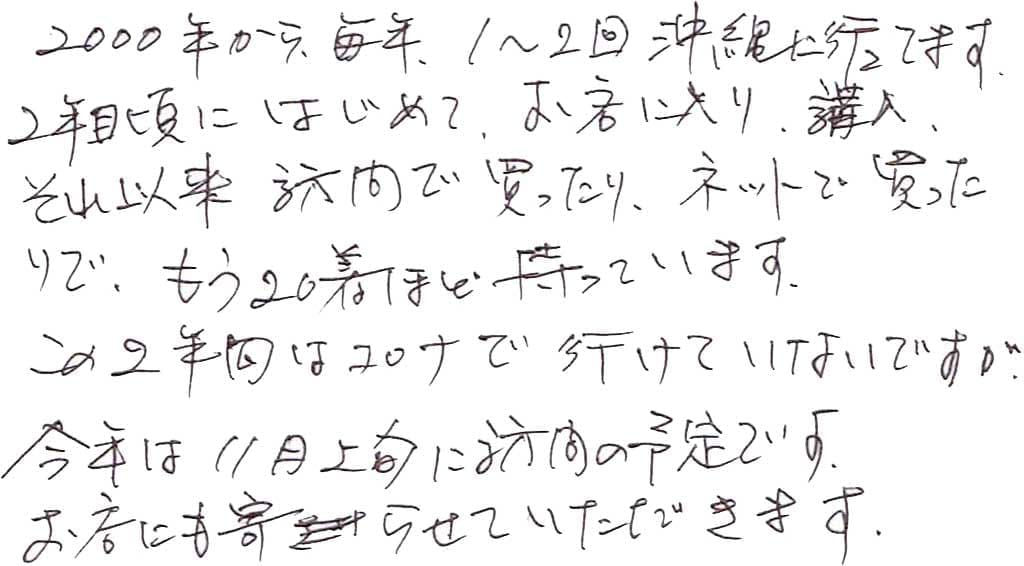 2000年から、毎年、1〜2回沖縄に行ってます。
2年目頃にはじめて、お店に入り、購入、
それ以来 訪問で買ったり、ネットで買った
りで、もう20着ほど持っています。
この2年間はコロナで行けていないですが、
今年は11月上旬に訪問の予定です。
お店にも寄らせていただきます。